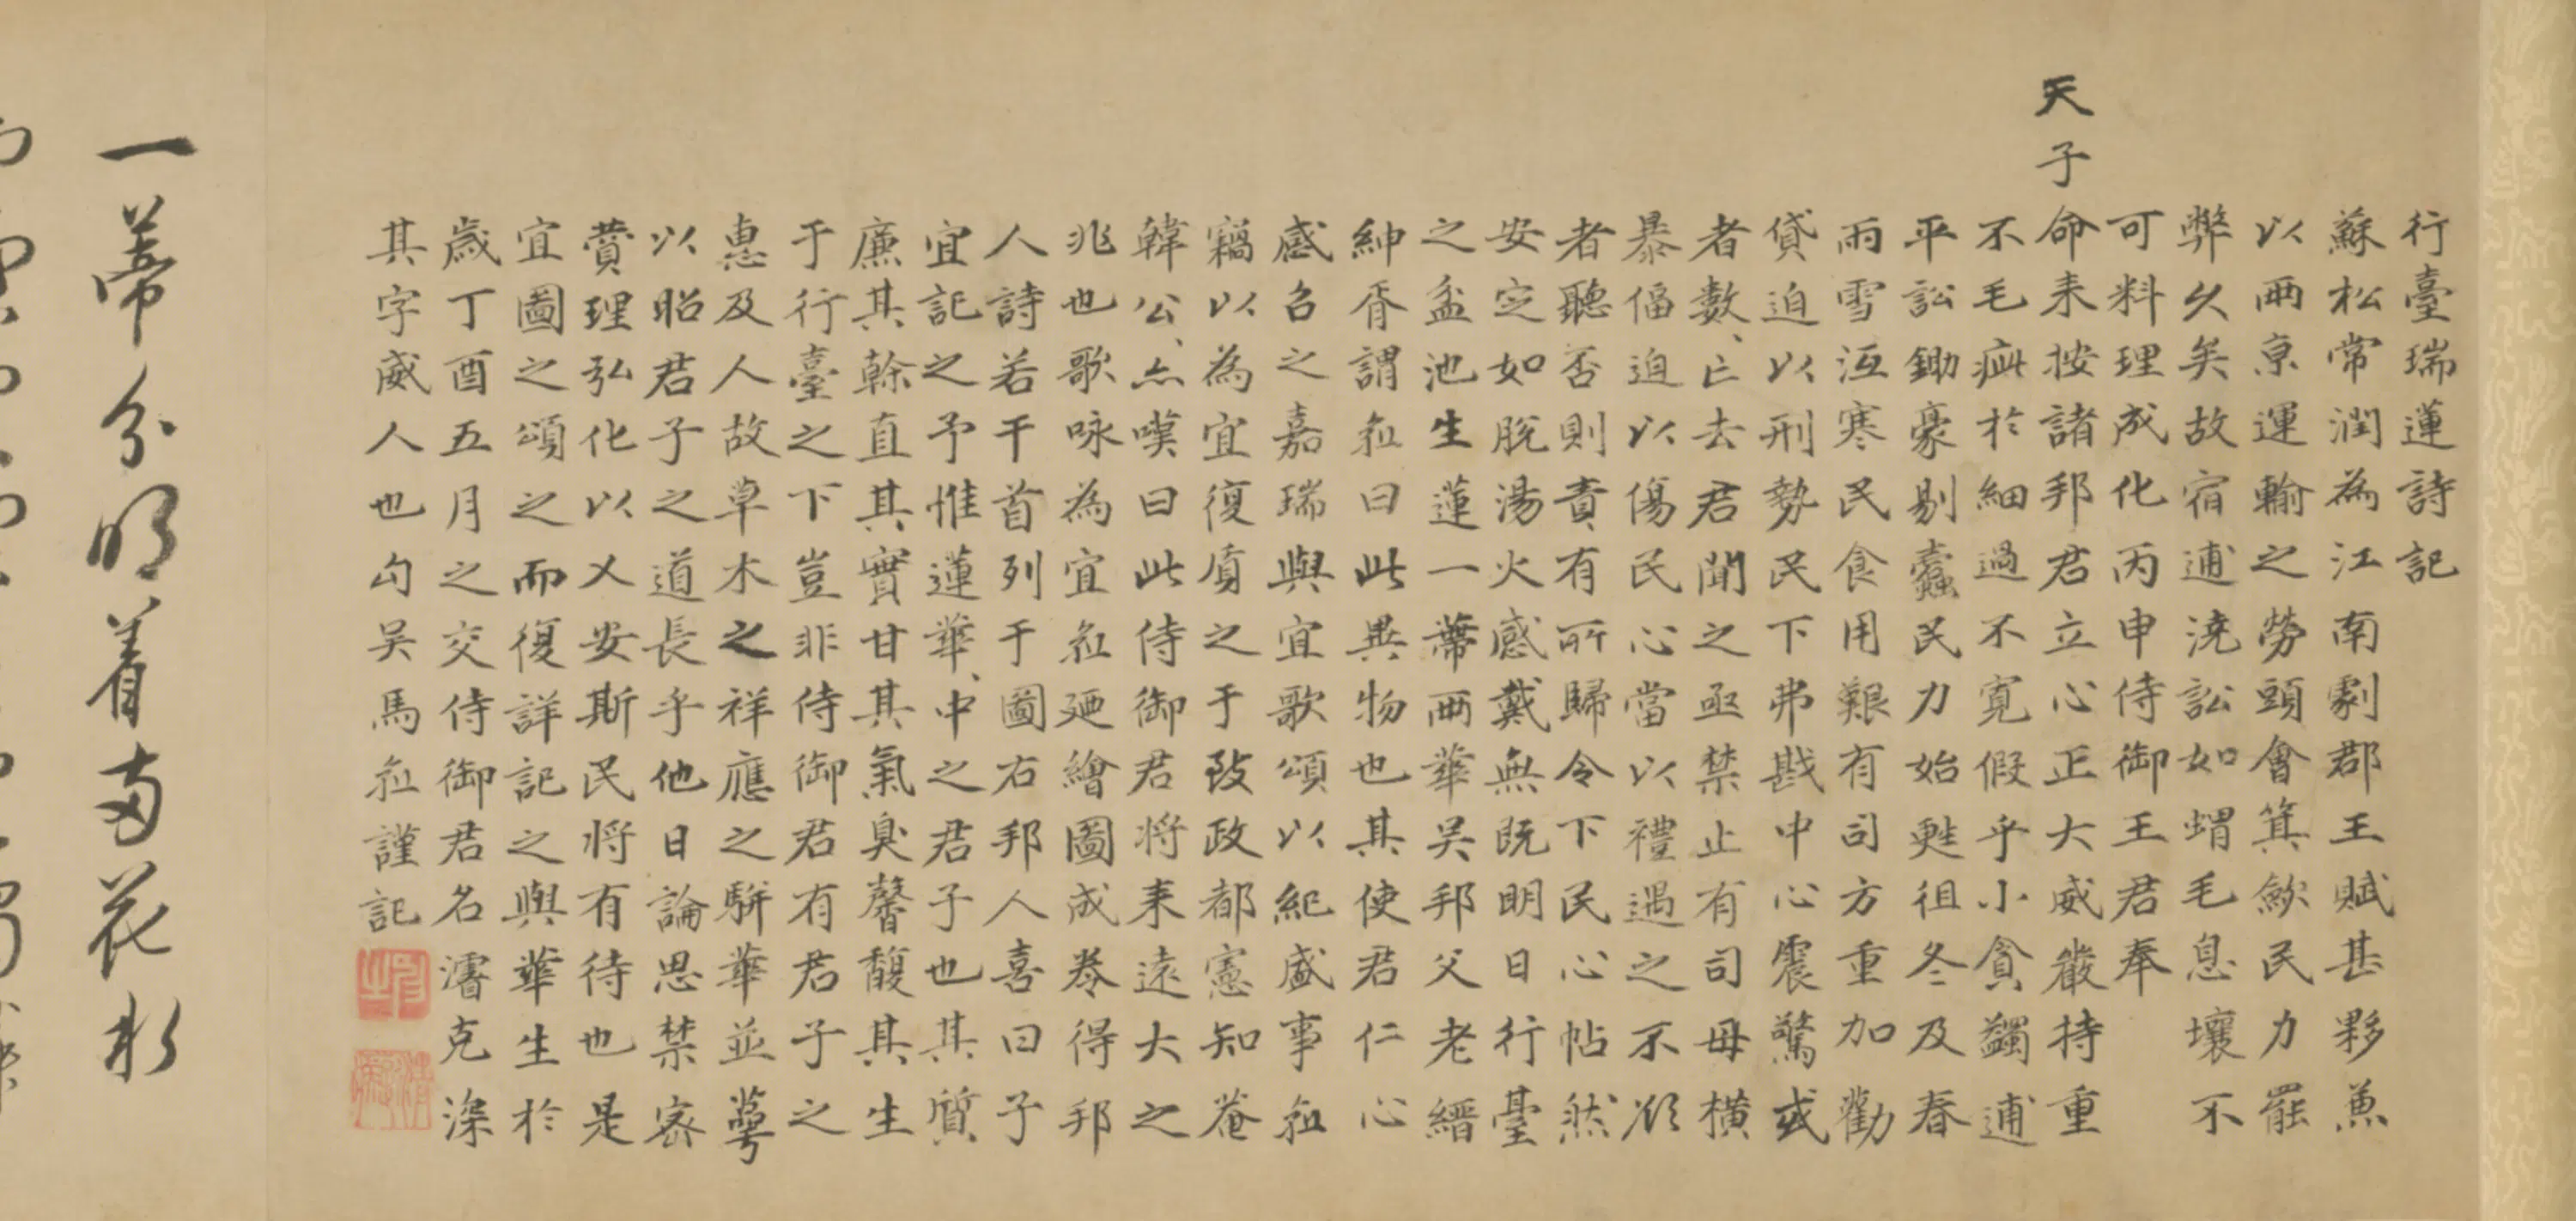 行臺瑞蓮詩記
蘇松常潤為江南劇郡王賦甚夥兼
以兩京運輸之勞頭會箕歛民力罷
弊久矣故宿逋澆訟如蝟毛息壤不
可料理成化丙申侍御王君奉
天子命来按諸邦君立心正大威嚴持重
不毛疵於細過不寬假乎小貪蠲逋
平訟鋤豪剔蠹民力始甦徂冬及春
雨雪沍寒民食用艱有司方重加勸
貸迫以刑勢民下弗戡中心震驚或
者數、亡去君聞之亟禁止有司毋橫
暴偪迫以傷民心當以禮遇之不欲
者聽否則責有所歸令下民心帖然
安定如脫湯火感戴無既明日行臺
之盆池生蓮一蔕兩華吴邦父老縉
紳胥謂紭曰此異物也其使君仁心
感召之嘉瑞與宜歌頌以紀盛事紭
竊以為宜復質之于致政都憲知菴
韓公、亦嘆曰此侍御君将来遠大之
兆也歌咏為宜紭廼繪圖成卷得邦
人詩若干首列于圖右邦人喜曰子
宜記之予惟蓮華、中之君子也其質
廉其榦直其實甘其氣臭馨馥其生
于行臺之下豈非侍御君有君子之
惠及人故草木之祥應之駢華並萼
以昭君子之道長乎他日論思禁密
賛理弘化以乂安斯民将有待也是
宜圖之頌之而復詳記之與華生於
歲丁酉五月之交侍御君名濬克深
其字威人也勾吴馬紭謹記
一蔕分明着两花